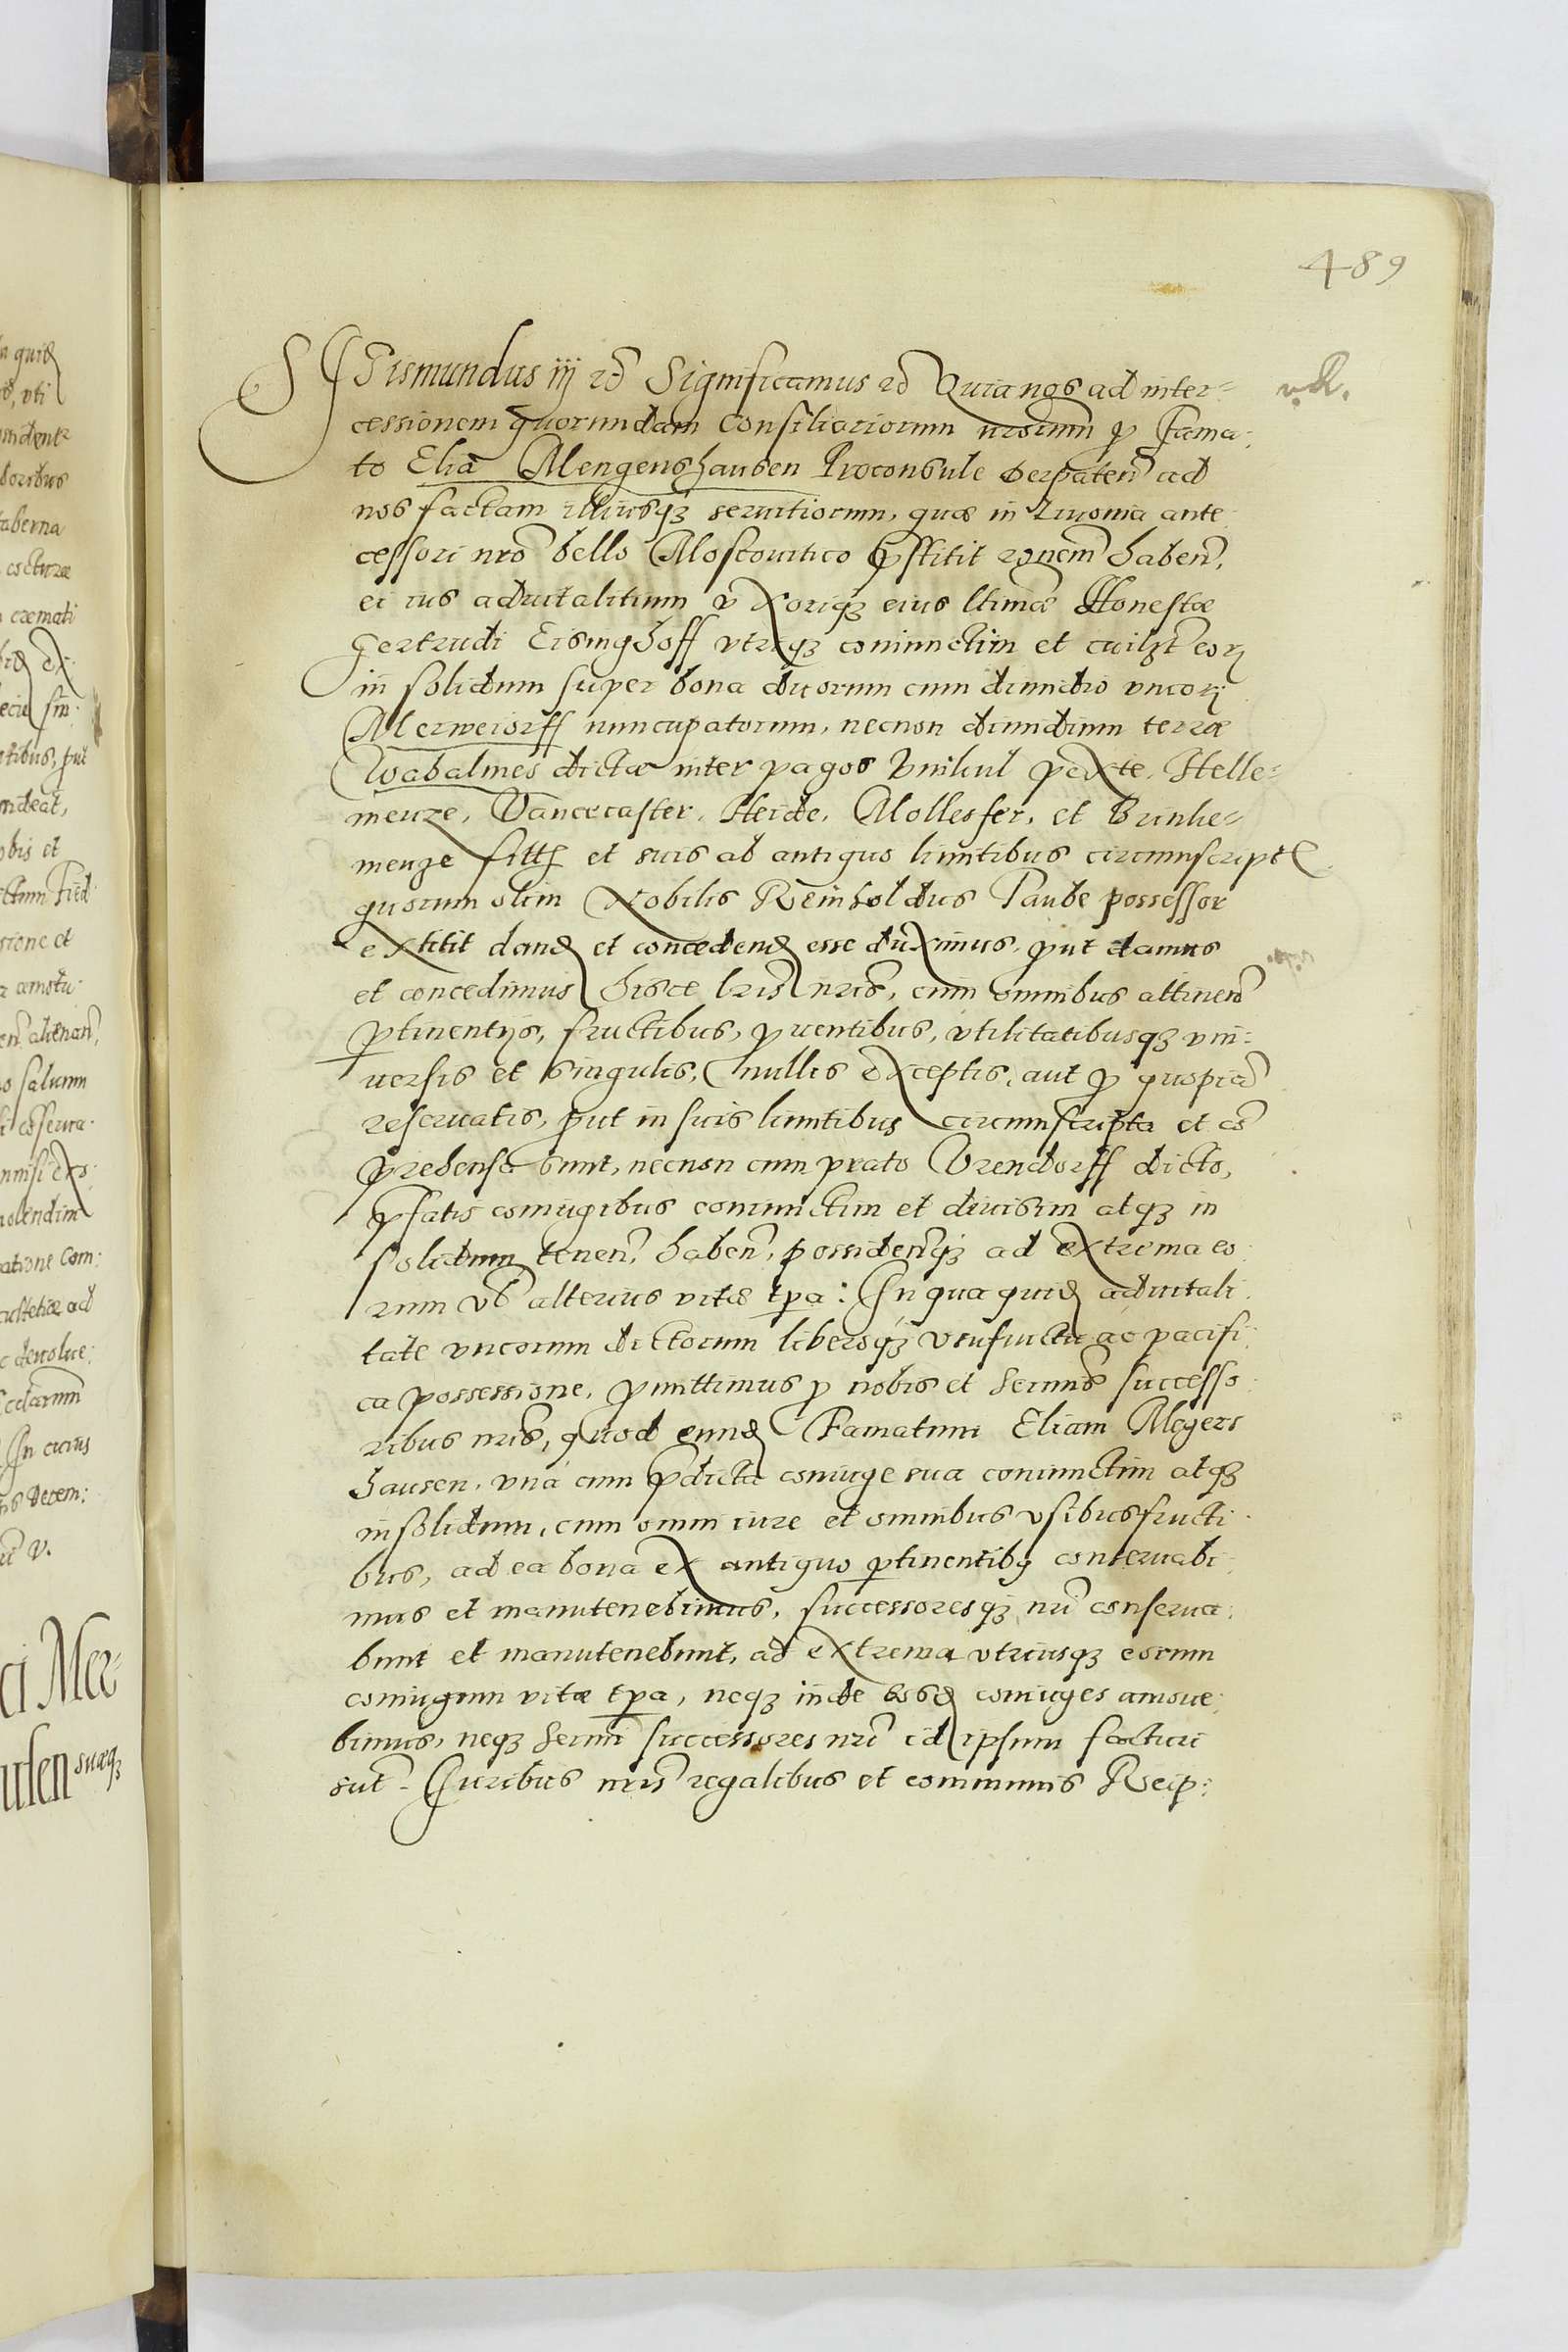 489
SIGismundus iij etc̃ Significamus etc̃ Quia nos ad inter-
v. R.
cessionem quorundam Consiliariorum nrorum p Fama:
to Elia Mengenshausen Proconsule Derpateñ ad
nos factam illiusq3 seruitiorum, quæ in Liuonia ante
cessori nrõ bello Moscouitico p̃stitit rõnem habeñ,
ei ius aduitalitium vxoriq3 eius ltimæ Honestæ
Gertrudi Eisinghoff vtriq3 coniunctim et cuilȝt eoꝝ
in solidum super bona duorum cum dimidio vncoꝝ
Merweisrff nuncupatorum, necnon dimidium terræ
Wabalmes dictæ inter pagos Vnikul pexte, Helle-
meuze, Vancecaster, Heide, Mollesfer, et Brinke-
menze sitis et suis ab antiquo limitibus circumscript
quorum olim Nobilis Reinholdus Taube possessor
extitit dand et concedend esse duximus, put damus
et concedimus hisce lris nris, cum omnibus attineñ
ptinentijs, fructibus, puentibus, vtilitatibusq3 vni-
uersis et singulis, nullis exceptis, aut p quopiã
reseruatis, put in suis limitibus circumscripta et cõ
prehensa sunt, necnon cum prato Vrendorff dicto,
p̃fatis coniugibus coniunctim et diuisim atq3 in
solidum teneñ, habeñ, possideñq3 ad extrema eo
rum vĩ alterius vitæ tpa: In qua quid aduitali
tate vncorum dictorum liberoq3 vsufructu ac pacifi
ca possessione, pmittimus p nobis et Sermis successo
ribus nris, quod eund Famatum Eliam Megers
hausen, vnà cum p̃dicta coniuge sua coniunctim atq3
in solidum, cum omni iure et omnibus vsibus fructi
bus, ad ea bona ex antiquo ptinentibꝯ conseruabi
mus et manutenebimus, successoresq3 nri conserua:
bunt et manutenebunt, ad extrema vtriusq3 eorum
coniugum vitæ tpa, neq3 inde eosd coniuges amoue:
bimus, neq3 Sermi successores nri id ipsum facturi
sut̃. Iuribus nris regalibus et communis Reip: